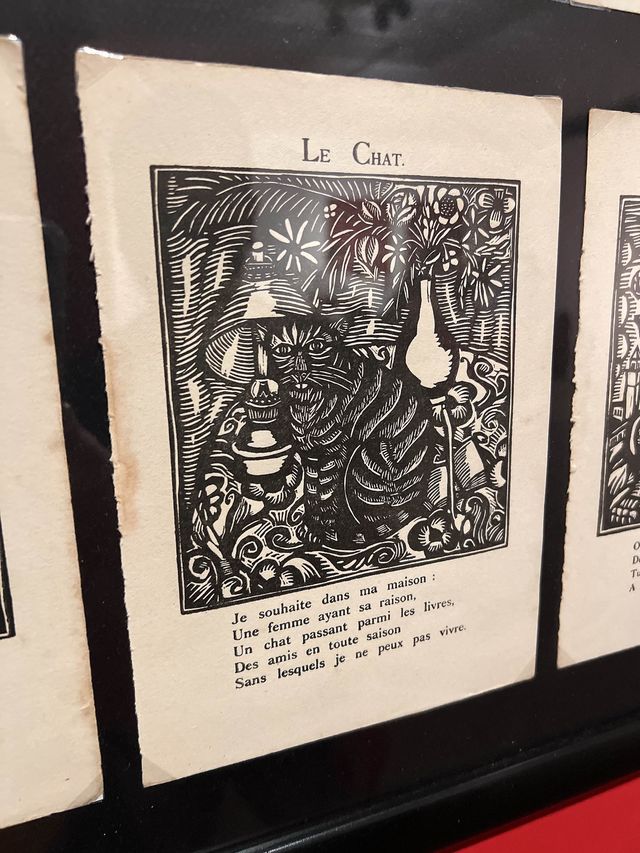 Le Chat.
Je souhaite dans ma maison :
Une femme ayant sa raison,
Un chat passant parmi les livres,
Des amis en toute saison
Sans lesquels je ne peux pas vivre.